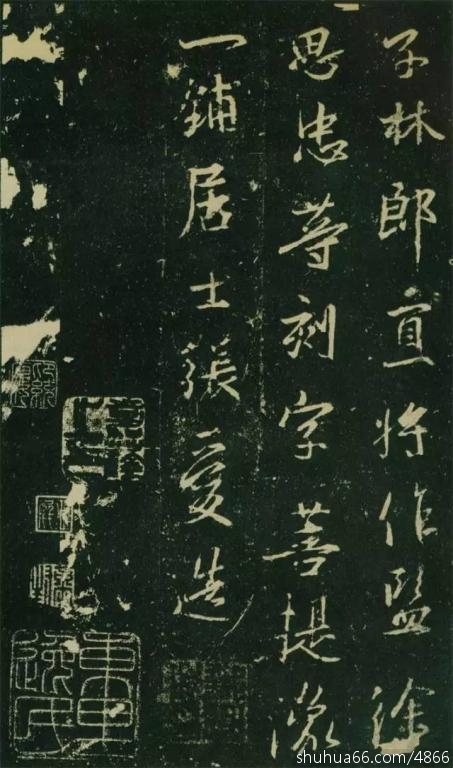 文林郎直將作監徐
思忠等刻字菩提像
一鋪居士張愛造
shuhua66.com/4866